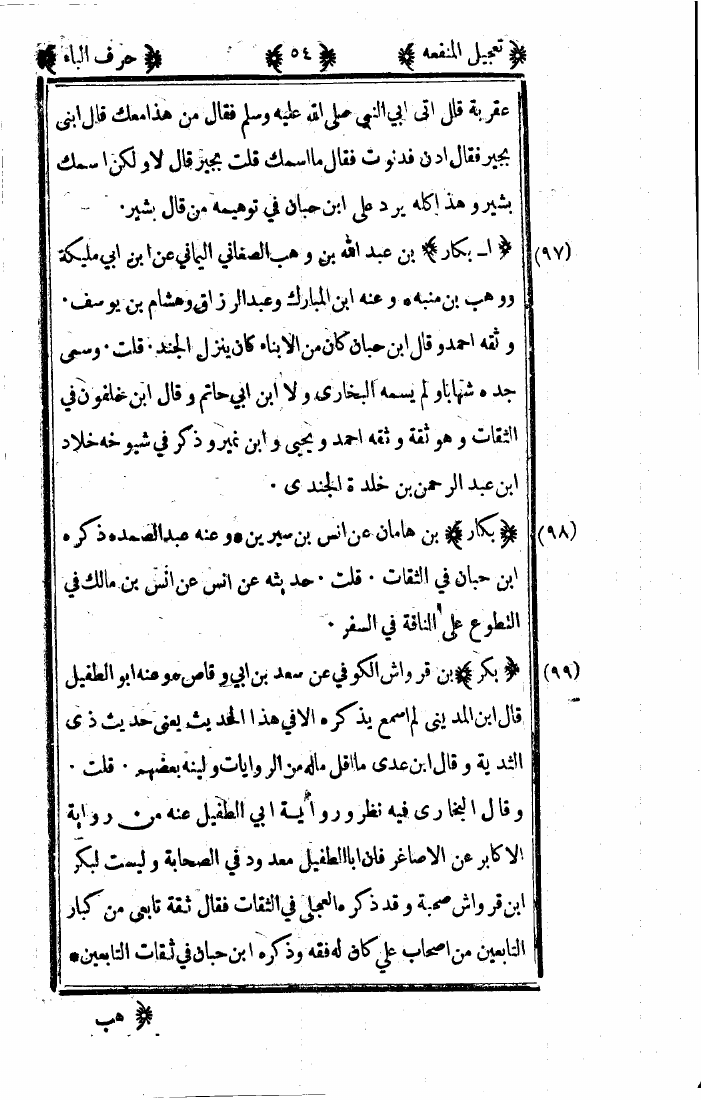 ﴿ تعجيل المنفعه ﴾ ﴿ ٥٤ ﴾ ﴿ حرف الباء ﴾
عقربة قال اتى ابي النبي صلى الله عليه وسلم فقال من هذا معك قال ابنى
بجير فقال ادن فدنوت فقال ما اسمك قلت بجير قال لا ولكن اسمك
بشير وهذا كله يرد على ابن حبان في توهيمه من قال بشير.
(٩٧) ﴿ ا ـ بكار ﴾ بن عبد الله بن وهب الصغاني اليماني عن ابن ابي مليكة
ووهب بن منبه * وعنه ابن المبارك وعبد الرزاق وهشام بن يوسف.
وثقه احمد وقال ابن حبان كان من الابناء كان ينزل الجند. قلت. وسمى
جده شهابا ولم يسمه البخارى ولا ابن ابي حاتم وقال ابن خلفون في
الثقات وهو ثقة وثقه احمد ويحيى وابن نمير وذكر في شيوخه خلاد
ابن عبد الرحمن بن خلدة الجندى.
(٩٨) ﴿ بكار ﴾ بن هامان عن انس بن سيرين * وعنه عبد الصمد * ذكره
ابن حبان في الثقات. قلت. حديثه عن انس عن انس بن مالك في
التطوع على الناقة في السفر.
(٩٩) ﴿ بكر ﴾ بن قرواش الكوفي عن سعد بن ابي وقاص * وعنه ابو الطفيل
قال ابن المدينى لم اسمع يذكره الا في هذا الحديث يعنى حديث ذى
الثدية وقال ابن عدى ما اقل ماله من الروايات ولينه بعضهم. قلت.
وقال البخارى فيه نظر ورواية ابي الطفيل عنه من رواية
الاكابر عن الاصاغر فان ابا الطفيل معدود في الصحابة وليست لبكر
ابن قرواش صحبة وقد ذكره العجلى في الثقات فقال ثقة تابعى من كبار
التابعين من اصحاب علي كان له فقه وذكره ابن حبان في ثقات التابعين *
﴿ هب